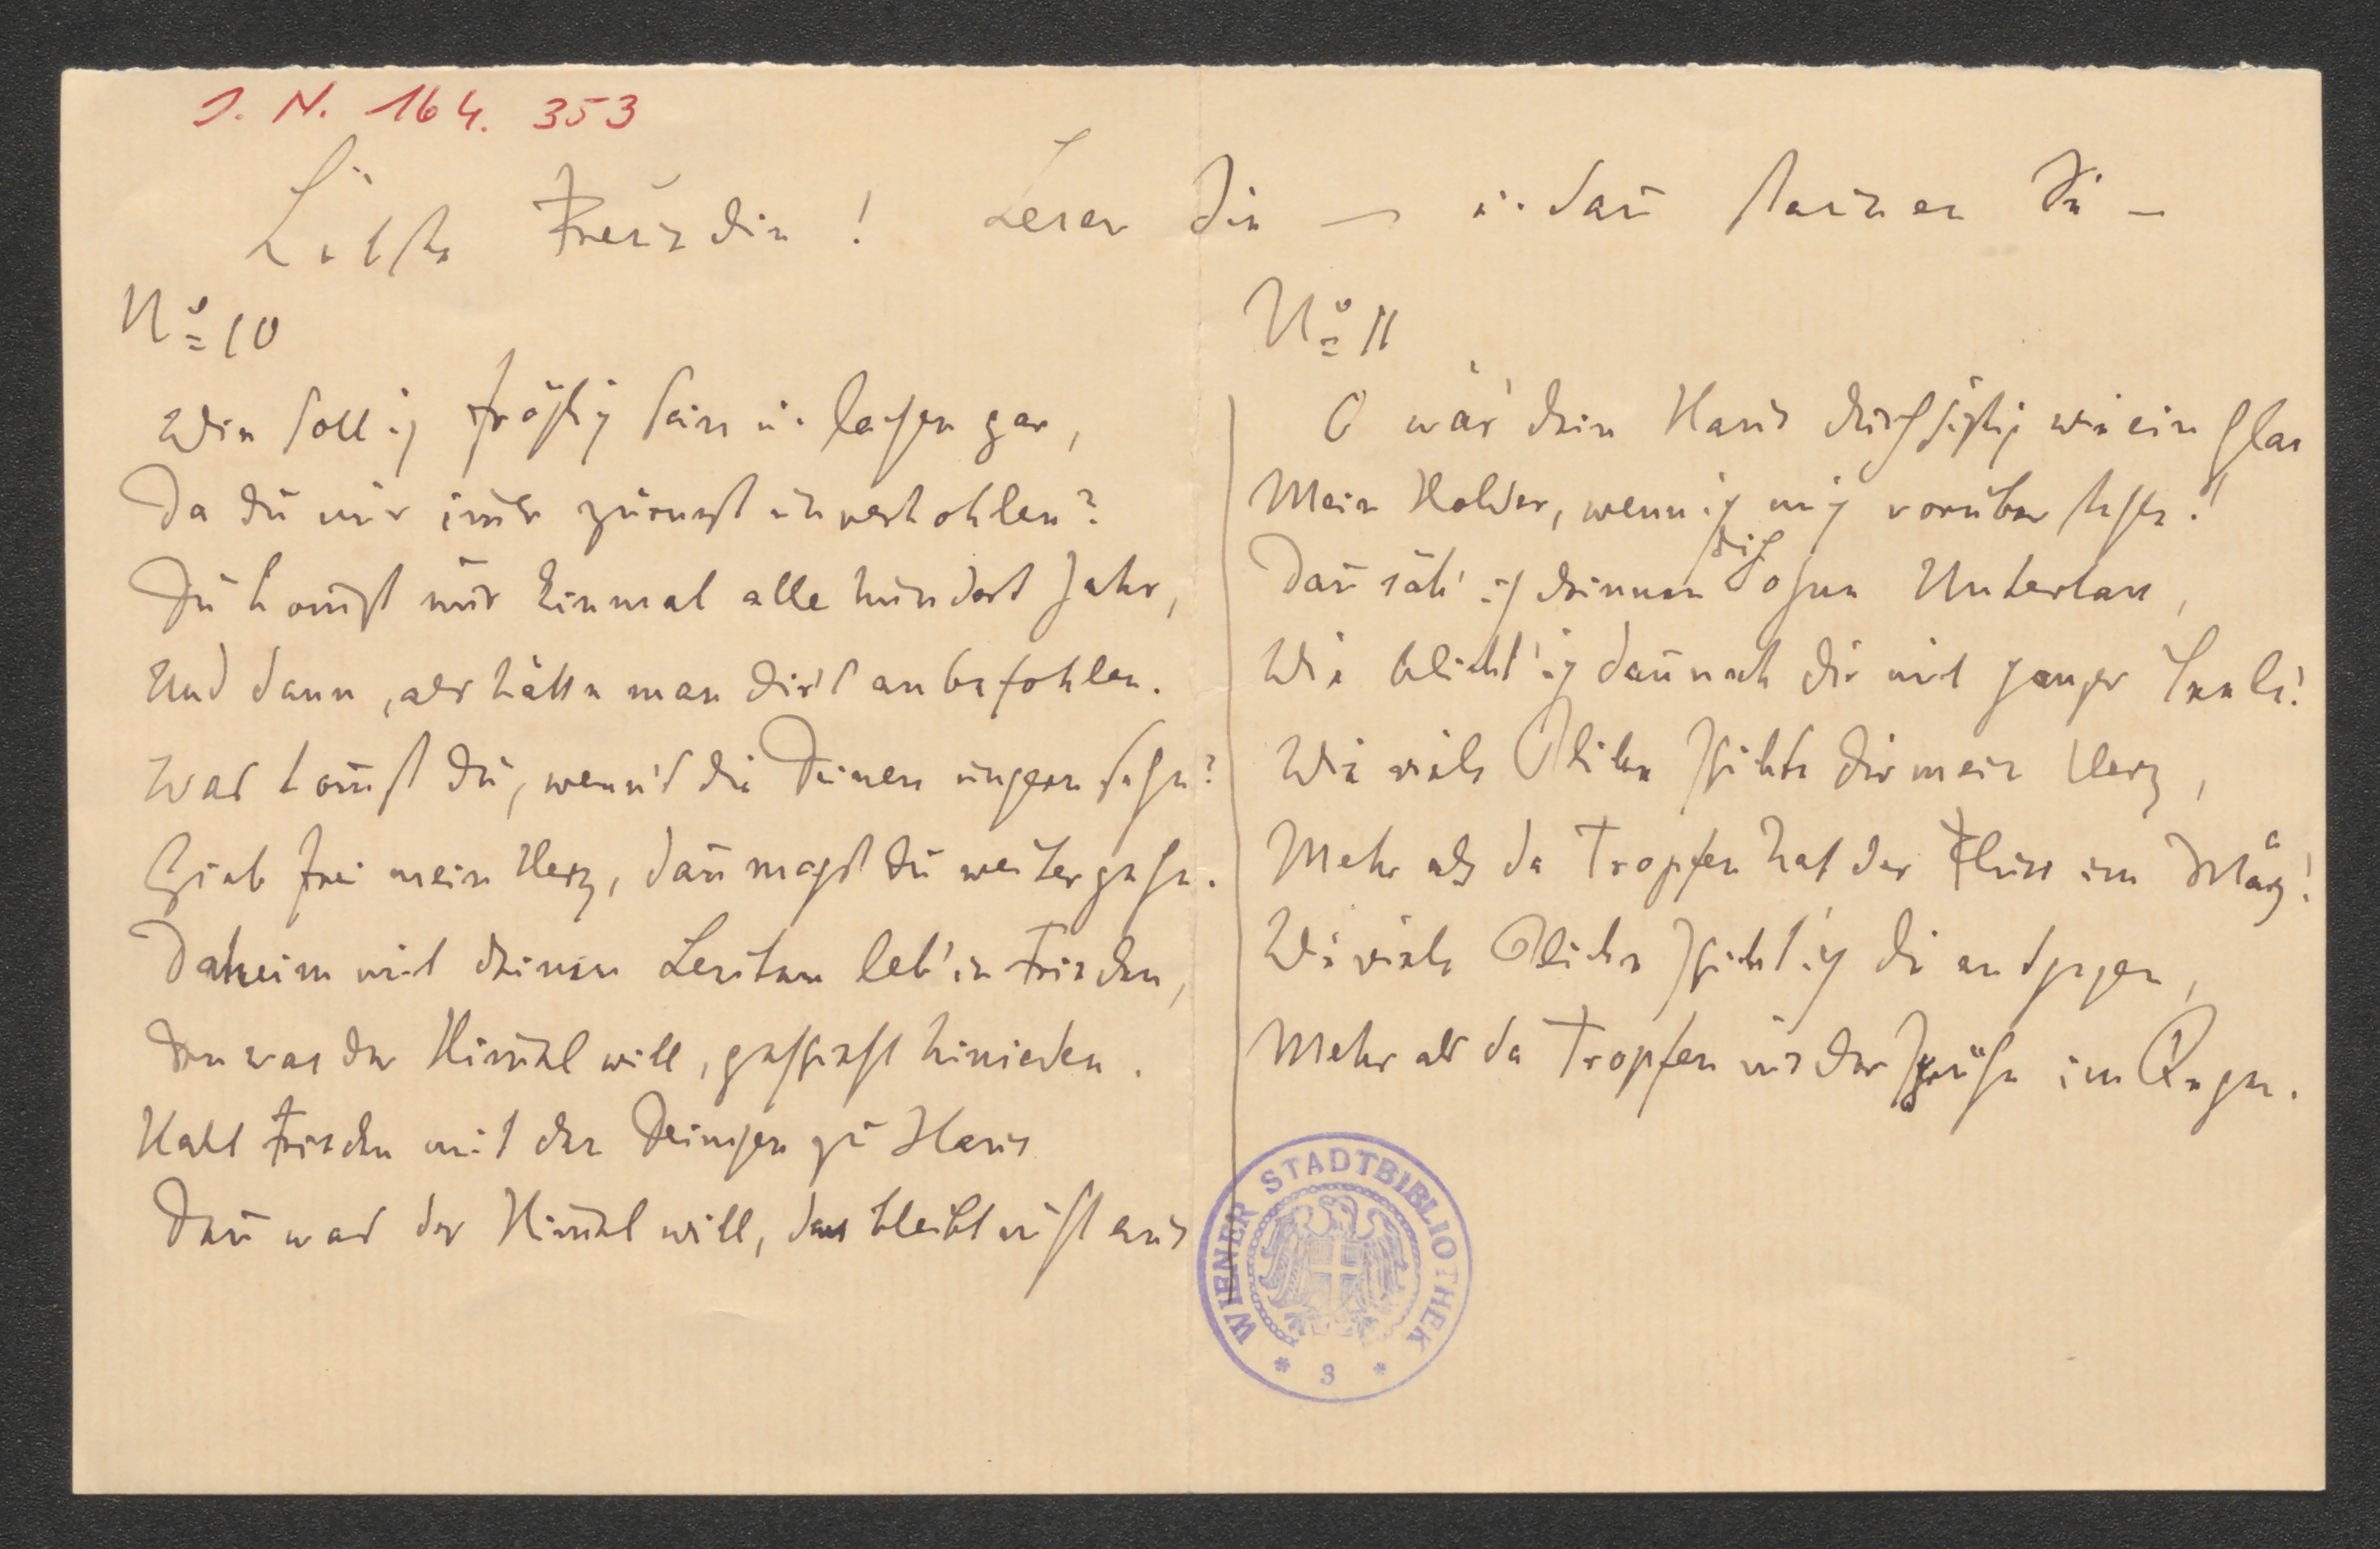 J. N. 164. 353
Liebste Freundin! Lesen Sie — u. dan̄ staunen Sie —
Nº 10
Wie soll ich fröhlich sein u. lachen gar,
Da du mir im̄er zürnest unverhohlen?
Du kom̄st nur Einmal alle hundert Jahr,
Und dann, als hätte man dir's anbefohlen.
Was kom̄st du, wenn's die Deinen ungern sehn?
Gieb frei mein Herz, dan̄ magst du weitergehn.
Daheim mit deinen Leuten leb' in Frieden,
Den̄ was der Him̄el will, geschieht hinieden.
Halt Frieden mit den Deinigen zu Haus
Den̄ was der Him̄el will, das bleibt nicht aus
Nº 11
O wär' dein Haus durchsichtig wie ein Glas
Mein Holder, wenn ich mich vorüber stehle!
Dan̄ säh' ich drinnen dich ohne Unterlass,
Wie blickt' ich dan̄ nach dir mit ganzer Seele!
Wie viele Blicke schickte dir mein Herz,
Mehr als da Tropfen hat der Fluss im März!
Wie viele Blicke schickt' ich dir entgegen,
Mehr als da Tropfen niedersprühn im Regen.
WIENER STADTBIBLIOTHEK
* 3 *